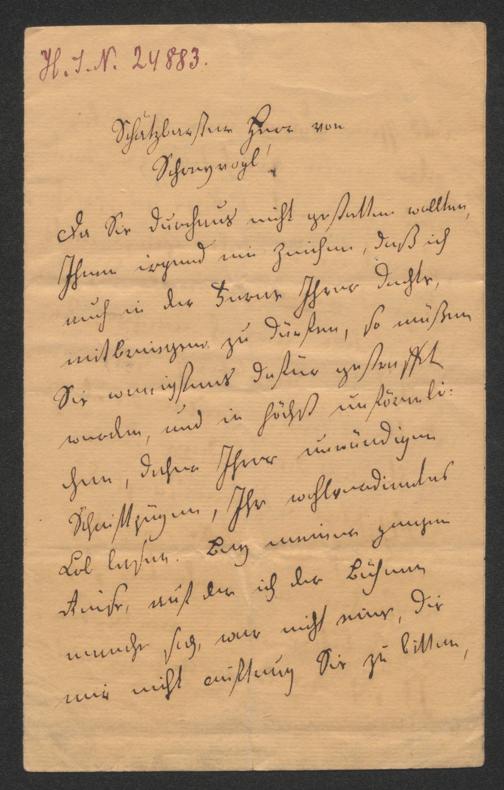 H. I. N. 24883.
Schätzbarster Herr von
Schreyvogl!
Da Sie durchaus nicht gestatten wollten,
Ihnen irgend ein Zeichen, daß ich
auch in der Ferne Ihrer dachte,
mitbringen zu dürfen, so müßen
Sie wenigstens dafür gestraft
werden, und in höchst unförmli-
chen, daher Ihrer unwürdigen
Schriftzügen, Ihr wohlverdientes
Lob lesen. Bey meiner ganzen
Reise, auf der ich der Bühnen
manche sah, war nicht eine, die
mir nicht auftrug Sie zu bitten,